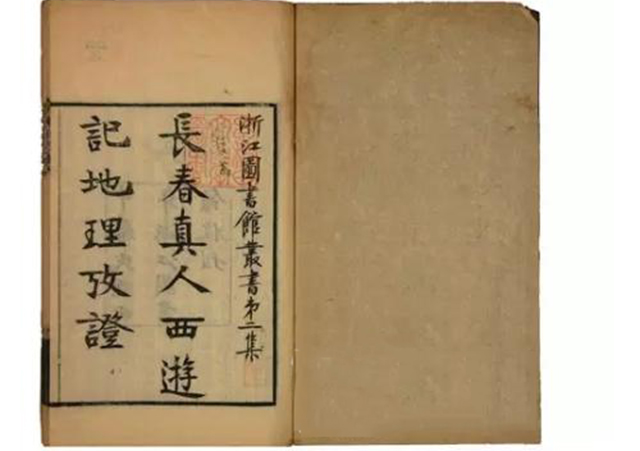 浙江圖書館叢書第二集
長春真人西遊
記地理攷證